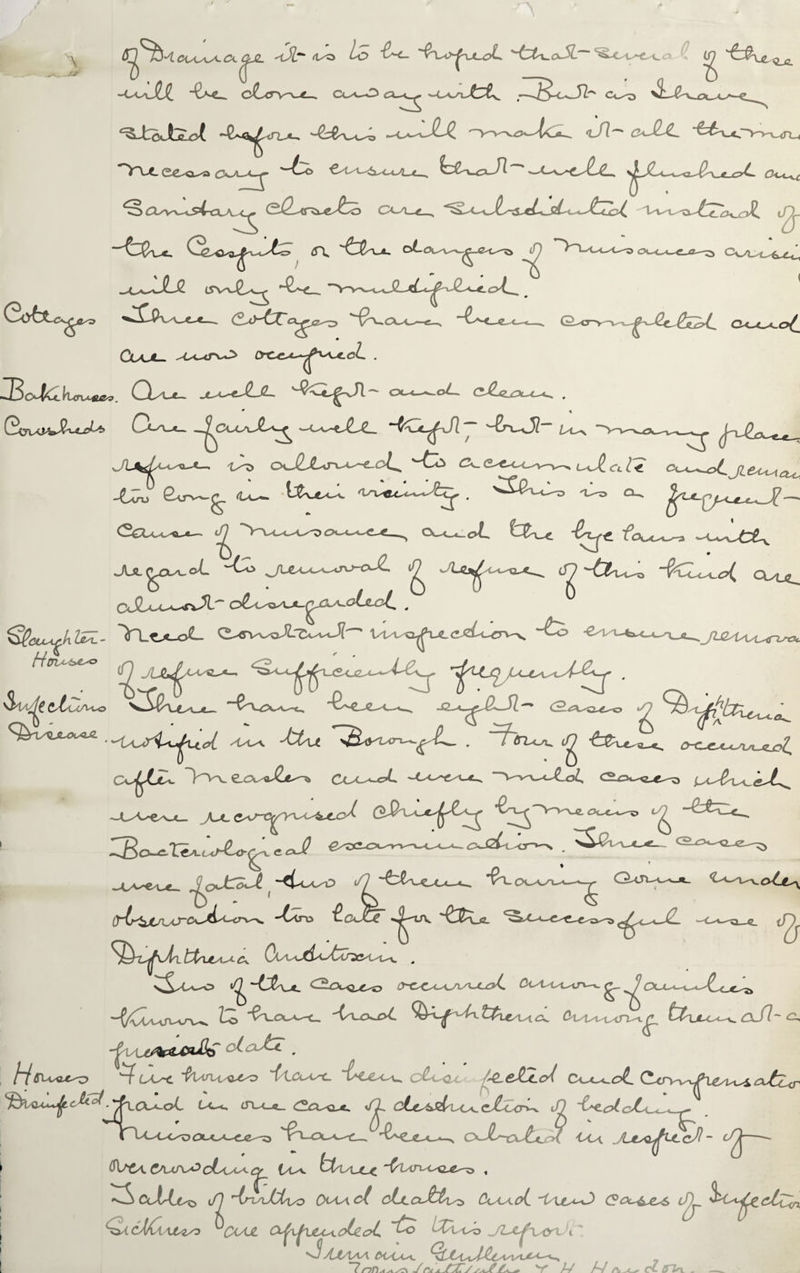 of Drainage it is to be hoped that several of these
will be done away with. But as I have
stated before this will make it all the more
necessary to ensure that well flushed
Sanitary Closets are substituted instead of
the Cesspits, or the dangers of Nuisances
will only be multiplied.
Cottages Three Cottages have been completed and
are now occupied.
Bakehouses. Are well Kept and clean.
Cowsheds Are fairly well Kept, but in many places
refuse is allowed to accumulate and
too long in their vicinity. This is a frequent
cause of Nuisance, and the bye laws with
regard to removal of refuse of this kind are
almost disregarded.
Slaughter- Need Constant inspection to ensure removal
Houses of refuse sufficiently frequently.
Infectious There have been eight cases of Diphtheria
Disease. notified in the Borough. Four of these occurred
after Measles and were mild cases which
were recognised chiefly by means of the
Bacteriological examination. Three cases
were fatal, two of them having come under
observation too late for the successful use of
Diphtheria Antitoxin.
Two of the cases occurred among families
known to have had Diphtheria among them at a
previous date.
Houses Five houses have been disinfected and Compensation
Disinfected. paid in one case of destruction of bedding.
Nuisances have been abated in respect of
overcrowding in three houses.
Tables of births and deaths and new cases of Infectious
Sickness are appended to this report.
I remain Gentlemen
Yours faithfully